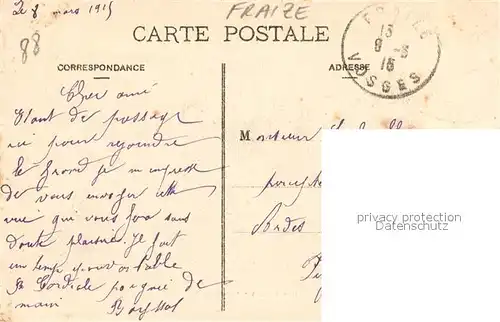 Le 8 mars 1915
FRAIZE
88
CARTE POSTALE
CORRESPONDANCE
ADRESSE
FRAIZE
13
9 -3
15
VOSGES
Cher ami
Étant de passage
ici pour rejoindre
le front je m'empresse
de vous envoyer cette
vue qui vous fera sans
doute plaisir. Je fait
un temps épouvantable
Cordiale poignée de
main
Monsieur
privacy protection
Datenschutz